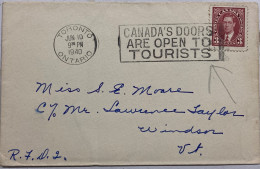 TORONTO
JUN 19
9 PM
1940
ONTARIO
CANADA'S DOORS
ARE OPEN TO
TOURISTS
Miss S. E. Moore
C/o Mr. Lawrence Taylor
Windsor
Vt.
R.F.D. 2.